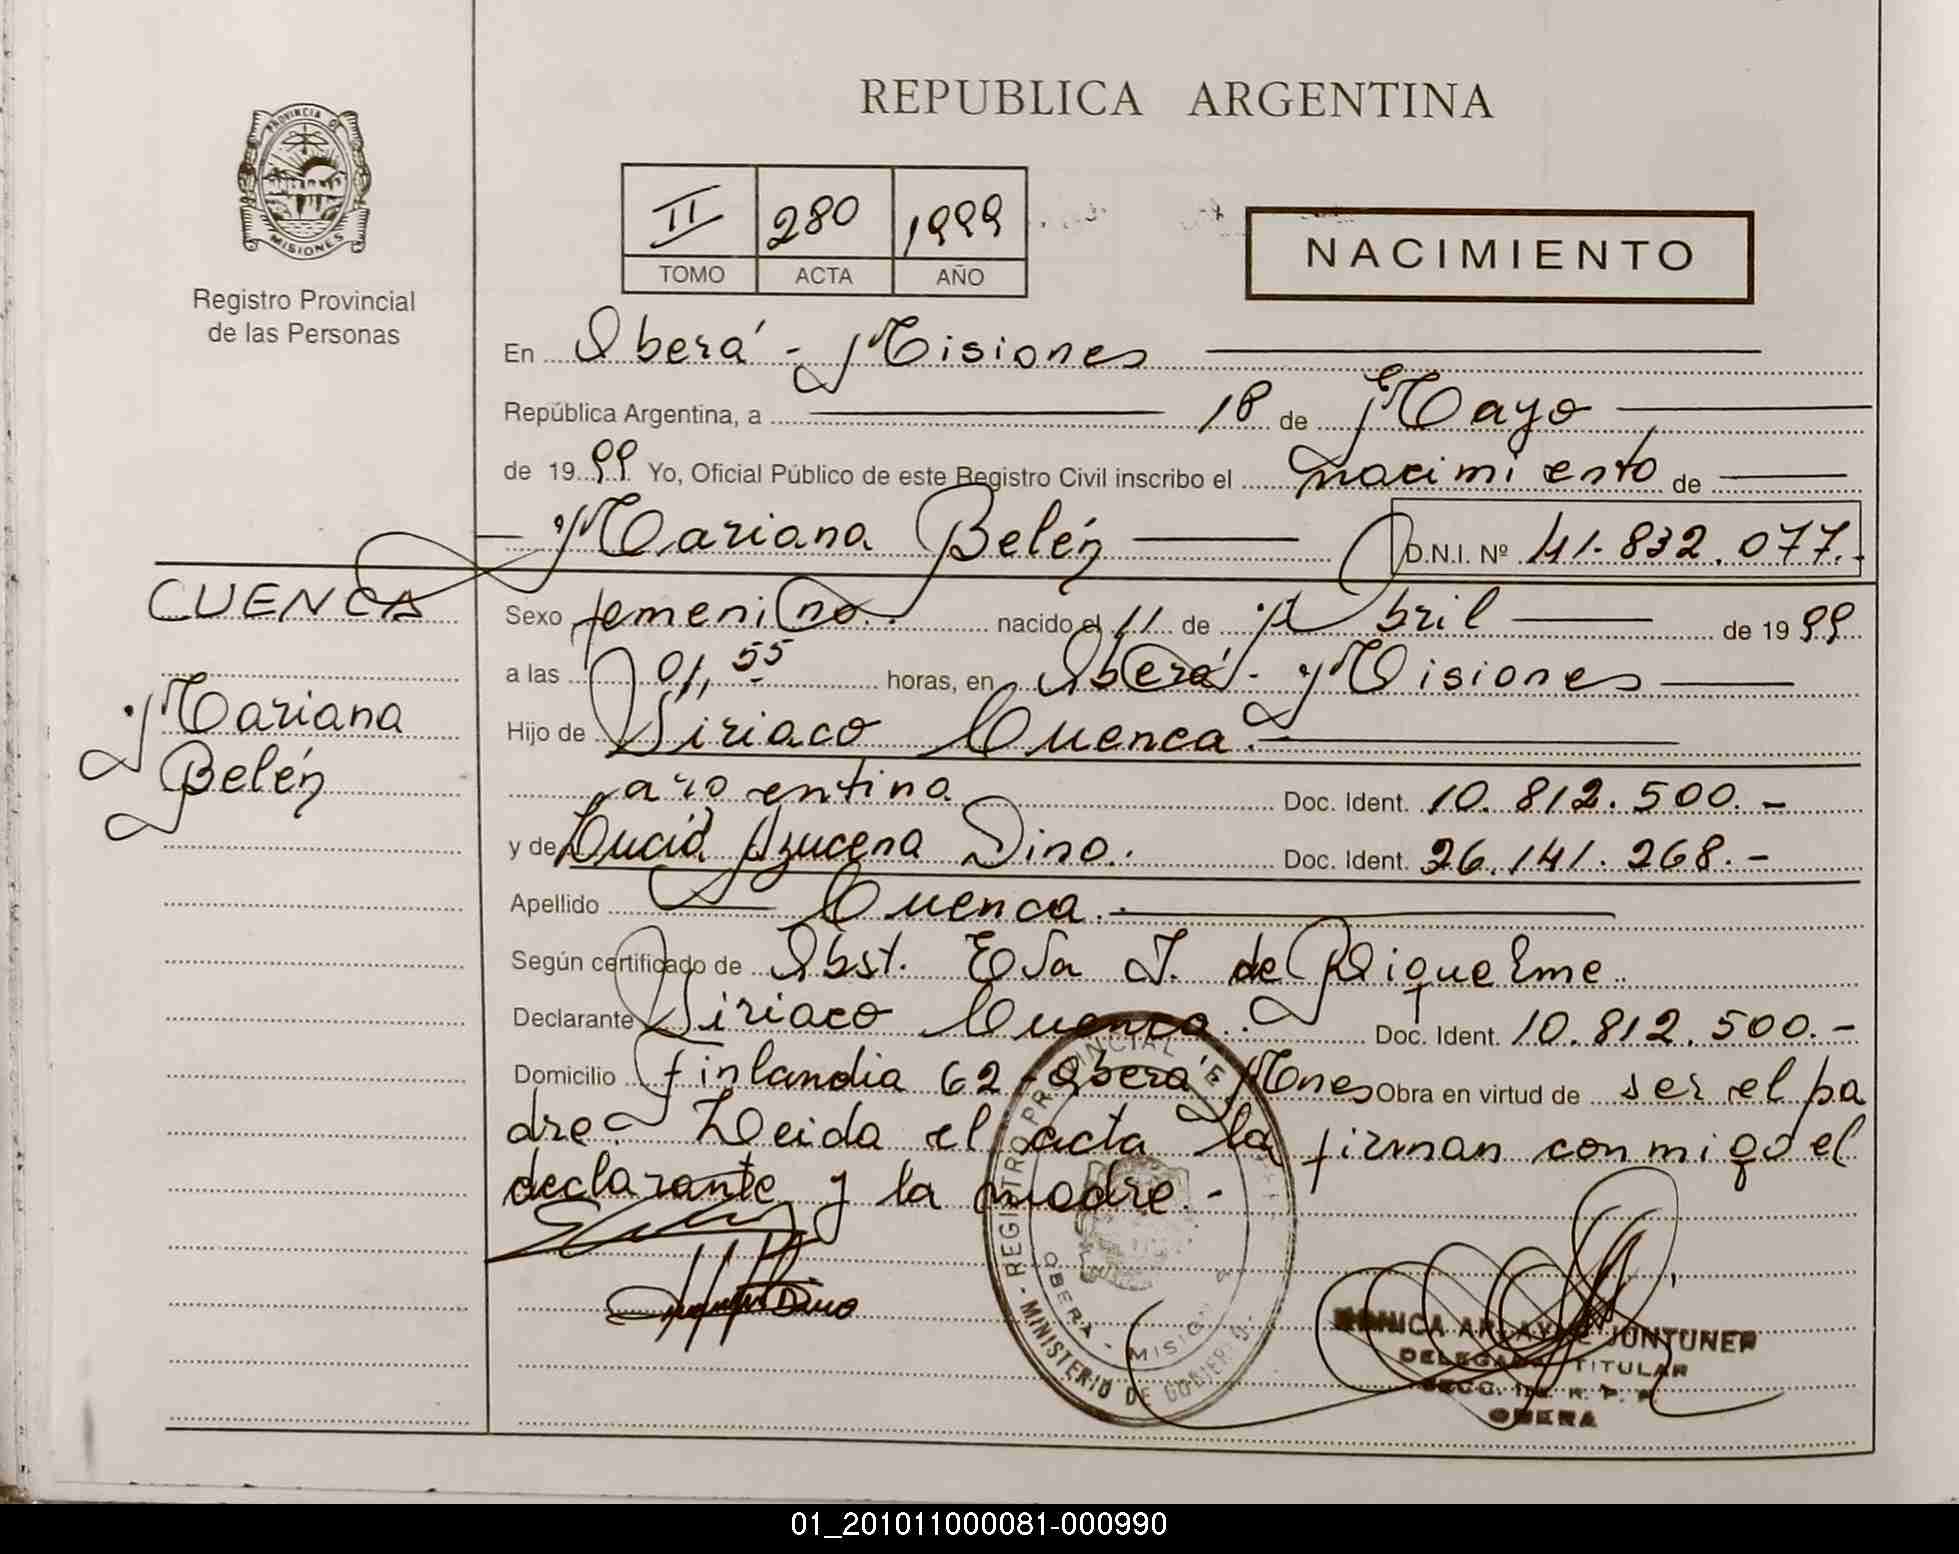 REPUBLICA ARGENTINA
PROVINCIA DE
MISIONES
Registro Provincial
de las Personas
II 280 1999
TOMO ACTA AÑO
NACIMIENTO
En Oberá - Misiones
República Argentina, a 18 de Mayo
de 1999 Yo, Oficial Público de este Registro Civil inscribo el nacimiento de
Mariana Belén D.N.I. Nº 41.832.077.-
CUENCA
Mariana
Belén
Sexo femenino. nacido el 11 de Abril de 1999
a las 01,55 horas, en Oberá - Misiones
Hijo de Siriaco Cuenca.
argentino Doc. Ident. 10.812.500.-
y de Lucia Azucena Dino. Doc. Ident. 26.141.268.-
Apellido Cuenca.
Según certificado de Obst. Eva J. de Riquelme.
Declarante Siriaco Cuenca. Doc. Ident. 10.812.500.-
Domicilio Finlandia 62 - Oberá Mnes Obra en virtud de ser el pa
dre. Leida el acta la firman conmigo el
declarante y la madre.-
Dino
REGISTRO PROVINCIAL DE
MINISTERIO DE GOBIERNO
OBERA - MISIONES
MONICA JUNTUNEN
DELEGADA TITULAR
SECC. R. P. P.
OBERA
01_201011000081-000990